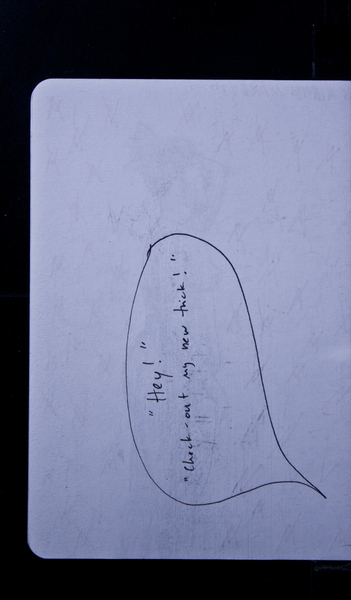 "Hey!"
"Check-out my new trick!"